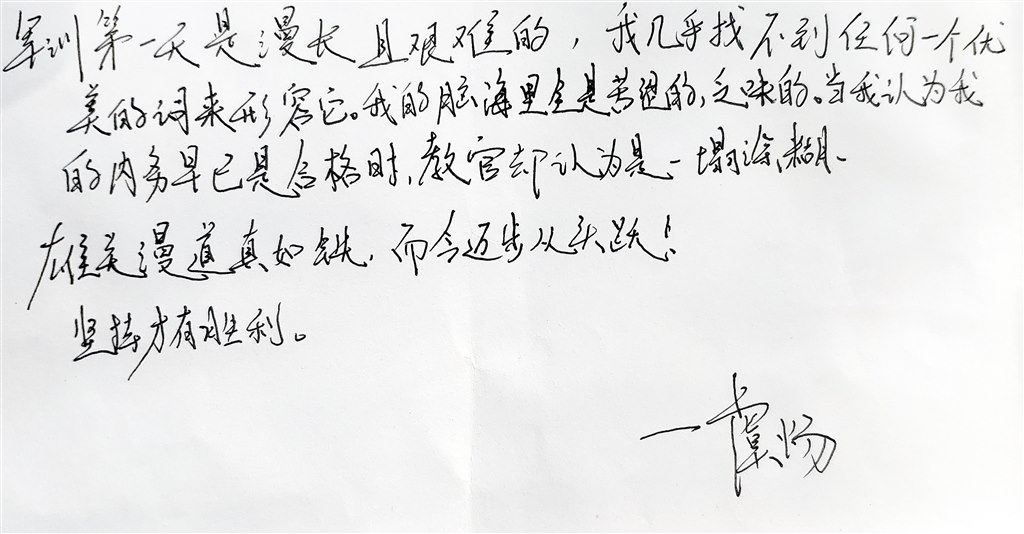 军训第一天是漫长且艰难的，我几乎找不到任何一个优
美的词来形容它。我的脑海里全是苦涩的，乏味的。当我认为我
的内务早已是合格时，教官却认为是一塌涂糊、
雄关漫道真如铁，而今迈步从头跃！
坚持才有胜利。
一虞炀